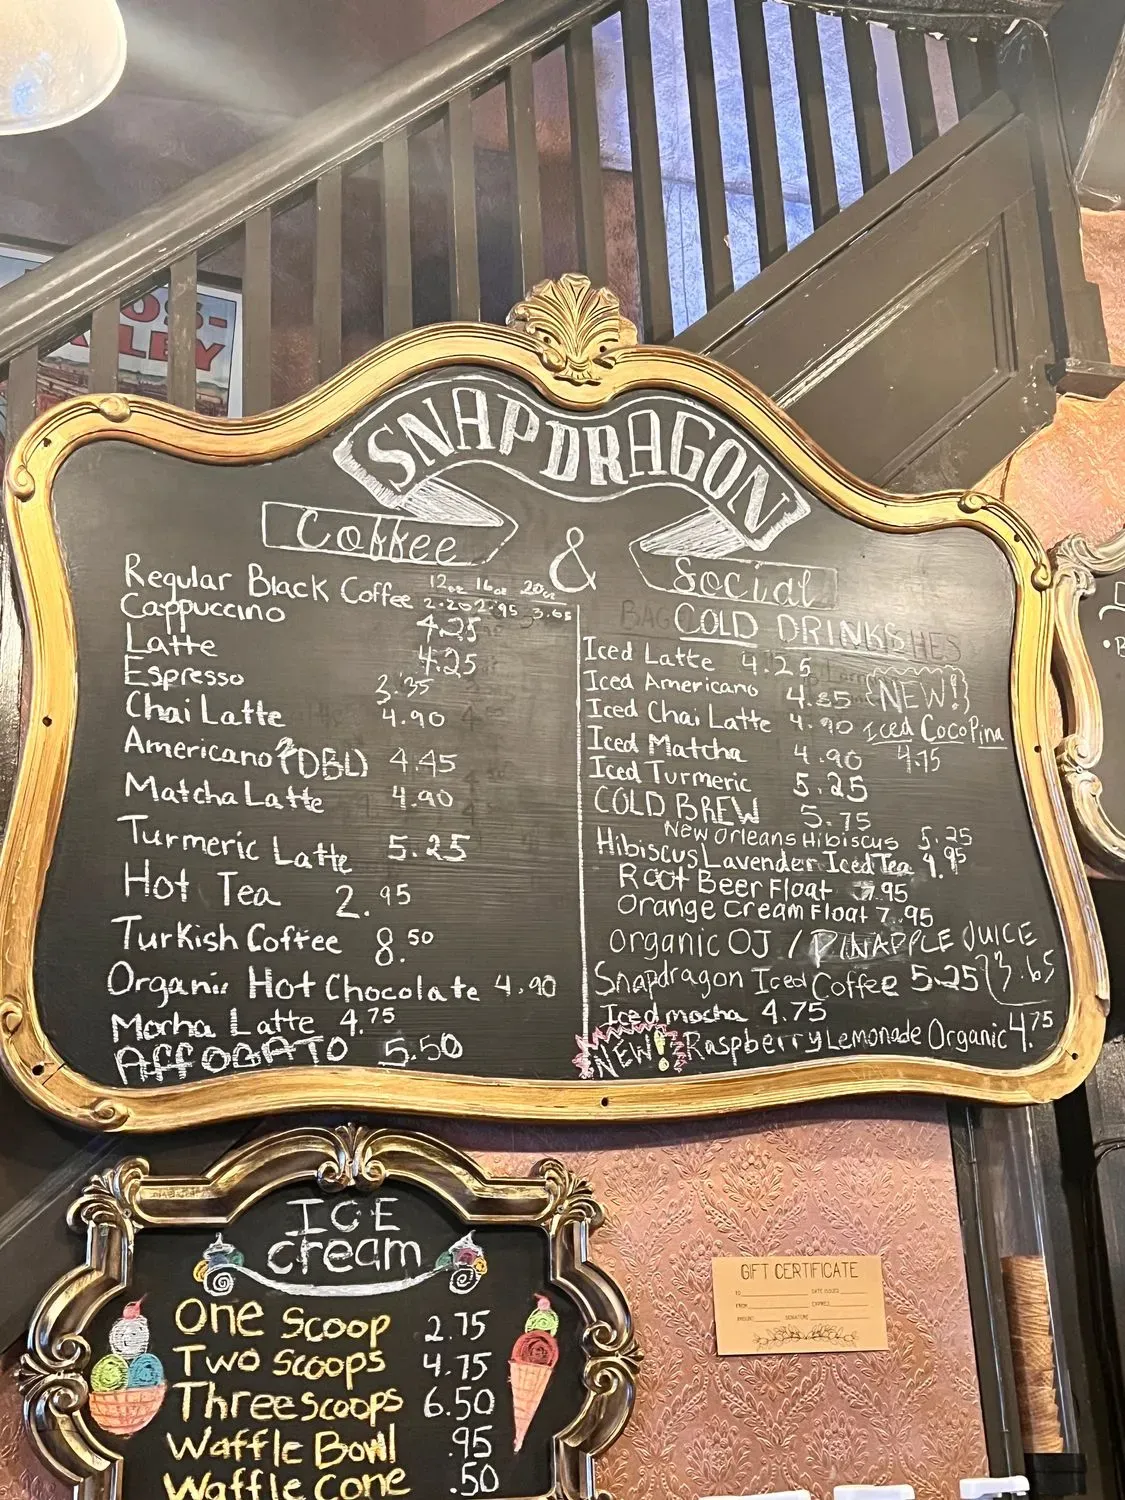 OS-
LEY
SNAPDRAGON
Coffee & Social
Regular Black Coffee 12oz 16oz 20oz
2.20 2.95 3.65
Cappuccino 4.25
Latte 4.25
Espresso 3.35
Chai Latte 4.90
Americano (DBL) 4.45
Matcha Latte 4.90
Turmeric Latte 5.25
Hot Tea 2.95
Turkish Coffee 8.50
Organic Hot Chocolate 4.90
Mocha Latte 4.75
AFFOGATO 5.50
COLD DRINKS
Iced Latte 4.25
Iced Americano 4.35
Iced Chai Latte 4.90
Iced Matcha 4.90
Iced Turmeric 5.25
COLD BREW 5.75
NEW!
Iced CocoPina
4.75
New Orleans Hibiscus 5.25
Hibiscus Lavender Iced Tea 4.95
Root Beer Float 7.95
Orange Cream Float 7.95
Organic OJ / PINAPPLE JUICE
3.65
Snapdragon Iced Coffee 5.25
Iced mocha 4.75
NEW! Raspberry Lemonade Organic 4.75
ICE
cream
One Scoop 2.75
Two Scoops 4.75
Three scoops 6.50
Waffle Bowl .95
Waffle Cone .50
GIFT CERTIFICATE
TO DATE ISSUED
FROM EXPIRES
AMOUNT SIGNATURE